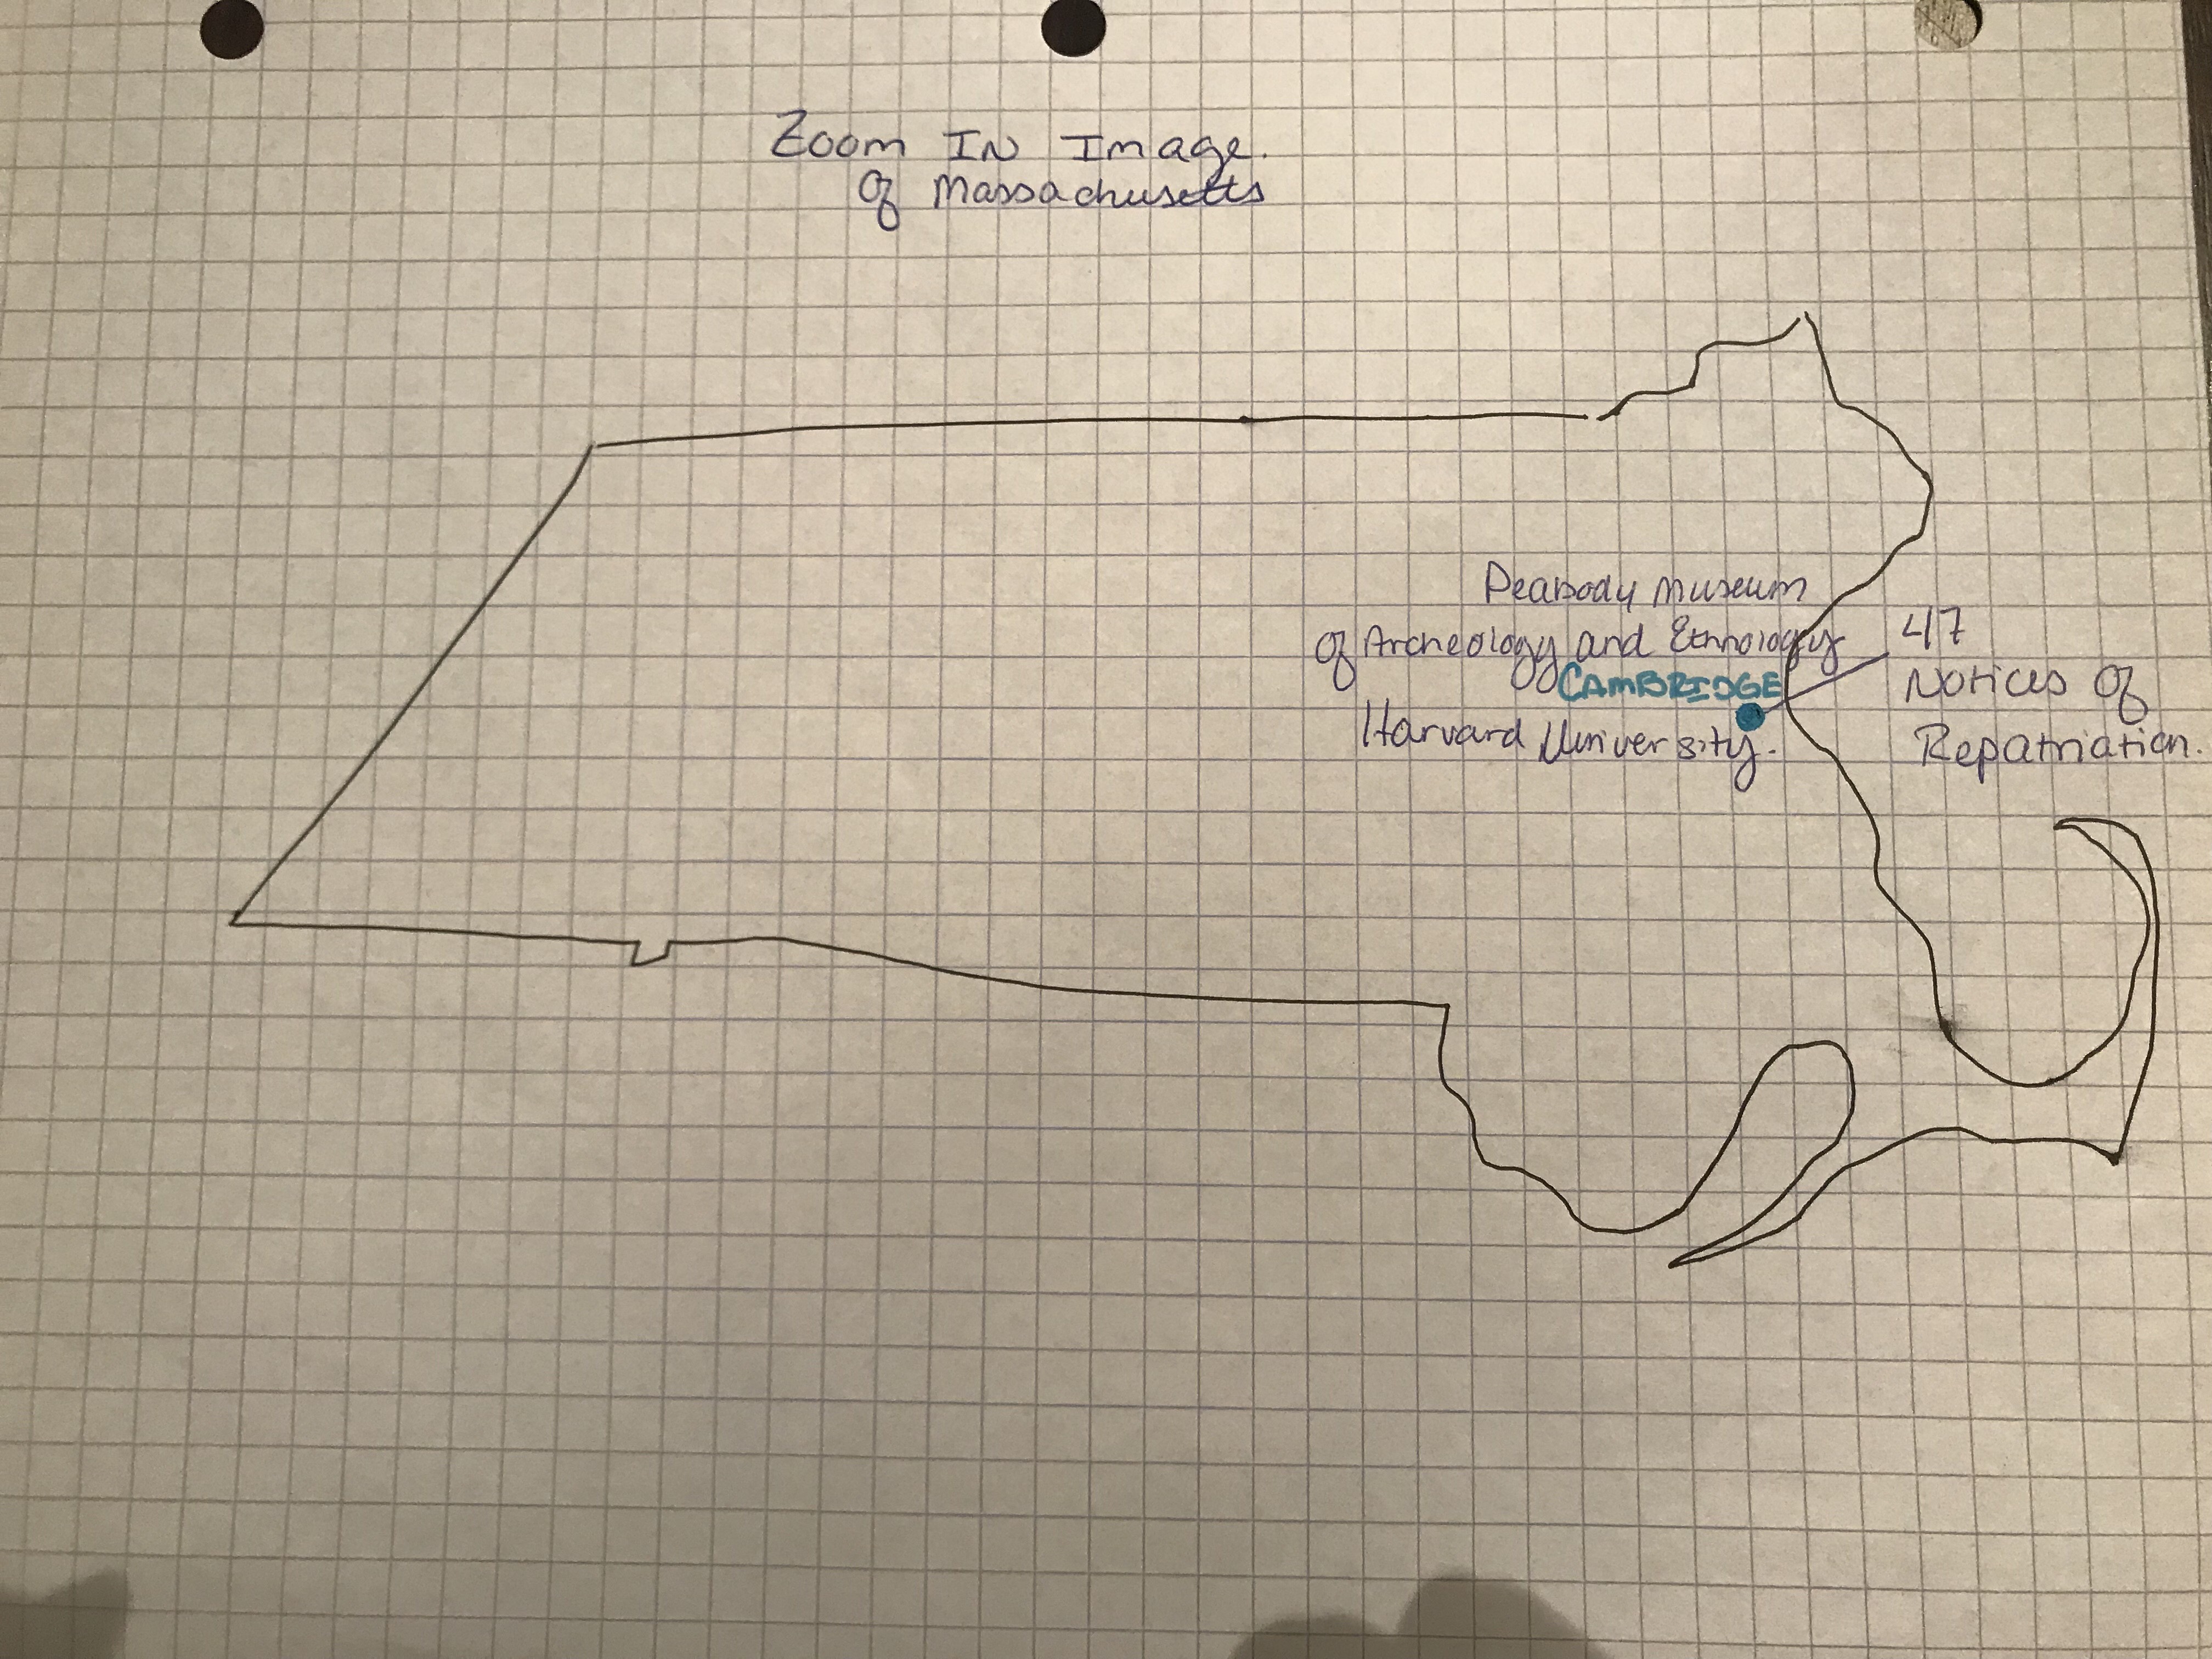 Zoom In Image.
Of Massachusetts
Peabody Museum
of Archeology and Ethnology
CAMBRIDGE
Harvard University.
47
Notices Of
Repatriation.